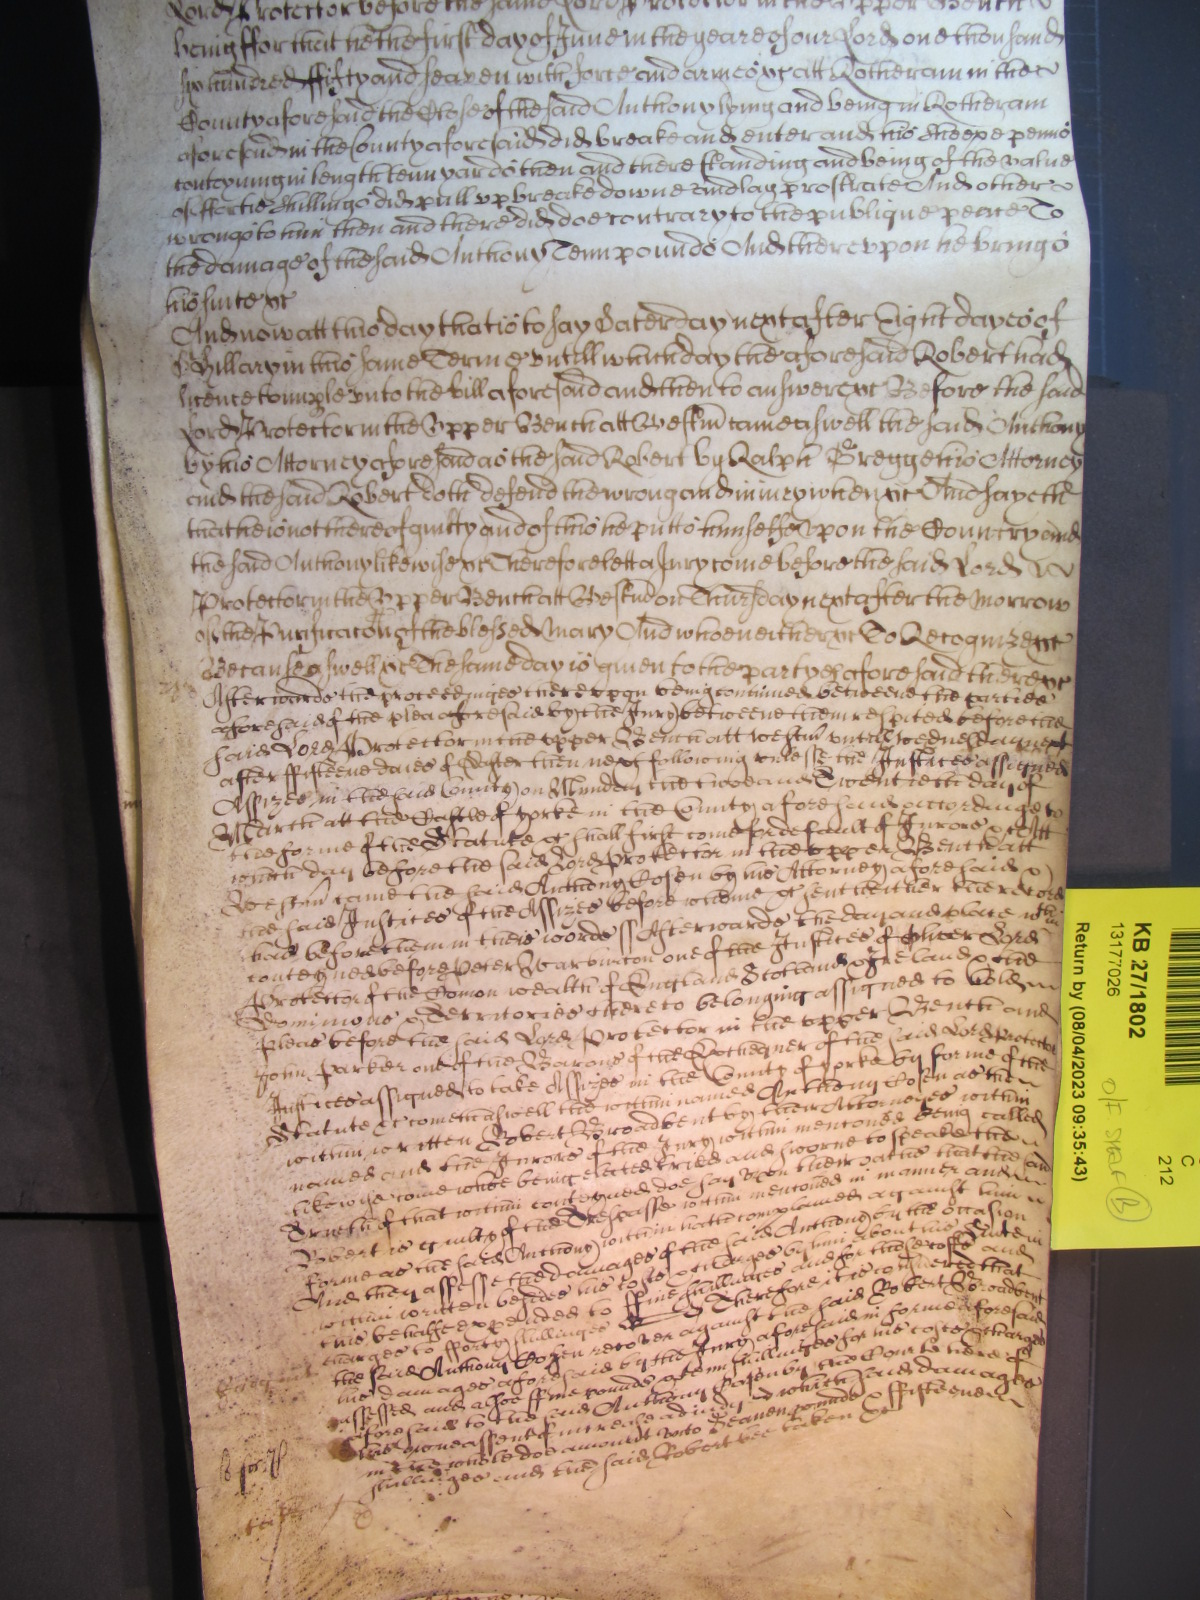 Lord Protector before the same Lord Protector in the Upper Bench
being ffor that he the first day of June in the yeare of our Lord one thousand
six hundred ffifty and seaven with force and armes &c att Rotheram in the
County aforesaid the Close of the said Anthony lying and being in Rotheram
aforesaid in the County aforesaid did breake and enter and his sheepe penns
conteyning in length tenn yards then and there standing and being of the value
of ffortie shillings did pull up breake downe and lay prostrate And other
wrongs to him then and there did doe contrary to the publique peace To
the damage of the said Anthony Tenn pounds And thereupon he brings
his suite &c
And now att this day that is to say Saterday next after Eight dayes of
St Hillary in this same Terme untill which day the aforesaid Robert had
licence to imple unto the bill aforesaid and then to answere &c Before the said
Lord Protector in the Upper Bench att Westm came aswell the said Anthony
by his Attorney aforesaid as the said Robert by Ralph Gregge his Attorney
and the said Robert doth defend the wrong and iniury when &c And sayeth
that he is not thereof guilty and of this he putts himselfe upon the Country and
the said Anthony likewise &c Therefore lett a Jury come before the said Lord
Protector in the Upper Bench att Westm on Thursday next after the Morrow
of the Purificacon of the blessed Mary And whoe neither &c To Recognize &c
Because aswell &c The same day is given to the partyes aforesaid there &c
Afterwards the proceedinges thereupon being continued betweene the parties
aforesaid of the plea aforesaid by the Jury betweene them respited before the
said Lord Protector in the upper Bench att Westm untill wednesday next
after ffifteene daies of Easter then next following unlesse the Justices assigned
Assizes in the said County on Munday the two and Twentieth day of
March att the Castle of Yorke in the County aforesaid accordinge to
the forme of the Statute &c shall first come for default of Jurors &c Att
which day before the said Lord Protector in the upper Bench att
Westm came the said Anthony Cosen by his Attorney aforesaid &
the said Justices of the Assizes before whome &c sent hither their record
had before them in theis words // Afterwards the day and place within
conteyned before Peter Warburton one of the Justices of Oliver Lord
Protector of the Comon wealth of England Scotland & Ireland & the
Dominions & Territories thereto belonging assigned to hold
pleas before the said Lord Protector in the upper Bench and
John Parker one of the Barons of the Exchequer of the said Lord Protector
Justices assigned to take Assizes in the County of Yorke by forme of the
Statute &c cometh aswell the within named Anthony Cosen as the
within written Robert Broadbent by their Attorneyes within
named and the Jurors of the Jury within mentioned being called
likewise come whoe being elected tried and sworne to speake the
Trueth of that within conteyned doe say upon their oathes that the said
Robert is guilty of the Trespasse within mentioned in manner and
forme as the said Anthony within hath complained against him
And they assesse the damages of the said Anthony by the occasion
within written besides his costs & charges by him about his suite in
this behalfe expended to ffive shillinges and for those costs and
charges to fforty shillinges Therefore it is considered that
the said Anthony Cosen recover against the said Robert Broadbent
his damages aforesaid by the Jury aforesaid in forme aforesaid
assessed and alsoe ffive pounds & tenn shillinges for his costs & charges
aforesaid to the said Anthony Cosen by the Courte here of
his owne assent of increase adiudged which said damages
in the whole doe amount unto Seaven pounds & ffifteene
shillinges and the said Robert bee taken &c
KB 27/1802
13177026
Return by (08/04/2023 09:35:43)
C
212